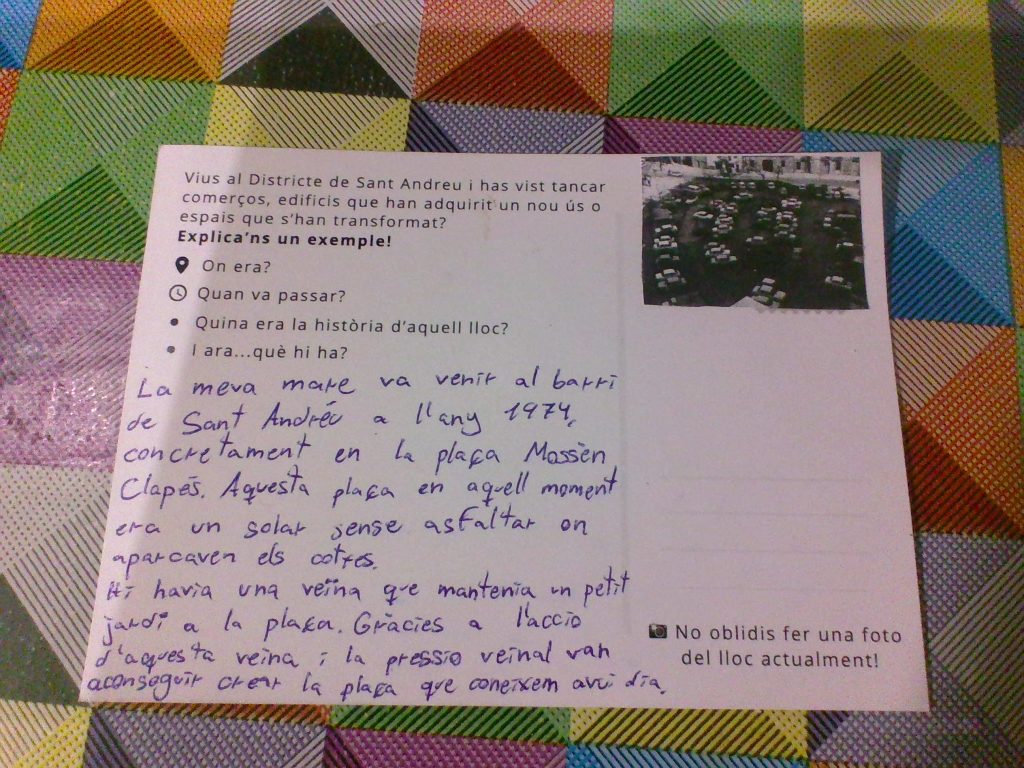 Vius al Districte de Sant Andreu i has vist tancar
comerços, edificis que han adquirit un nou ús o
espais que s'han transformat?
Explica'ns un exemple!
On era?
Quan va passar?
• Quina era la història d'aquell lloc?
• I ara...què hi ha?
La meva mare va venir al barri
de Sant Andréu a l'any 1974,
concretament en la plaça Mossèn
Clapés. Aquesta plaça en aquell moment
era un solar sense asfaltar on
aparcaven els cotxes.
Hi havia una veïna que mantenia un petit
jardí a la plaça. Gràcies a l'acció
d'aquesta veina i la pressio veinal van
aconseguir crear la plaça que coneixem avui dia.
No oblidis fer una foto
del lloc actualment!